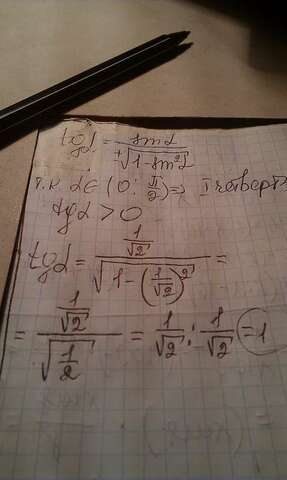 tgα = sinα / ±√(1-sin²α)
т.к α∈(0; π/2) => I четверть
tgα > 0
tgα = (1/√2) / √(1-(1/√2)²) =
= (1/√2) / √(1/2) = 1/√2 : 1/√2 = 1